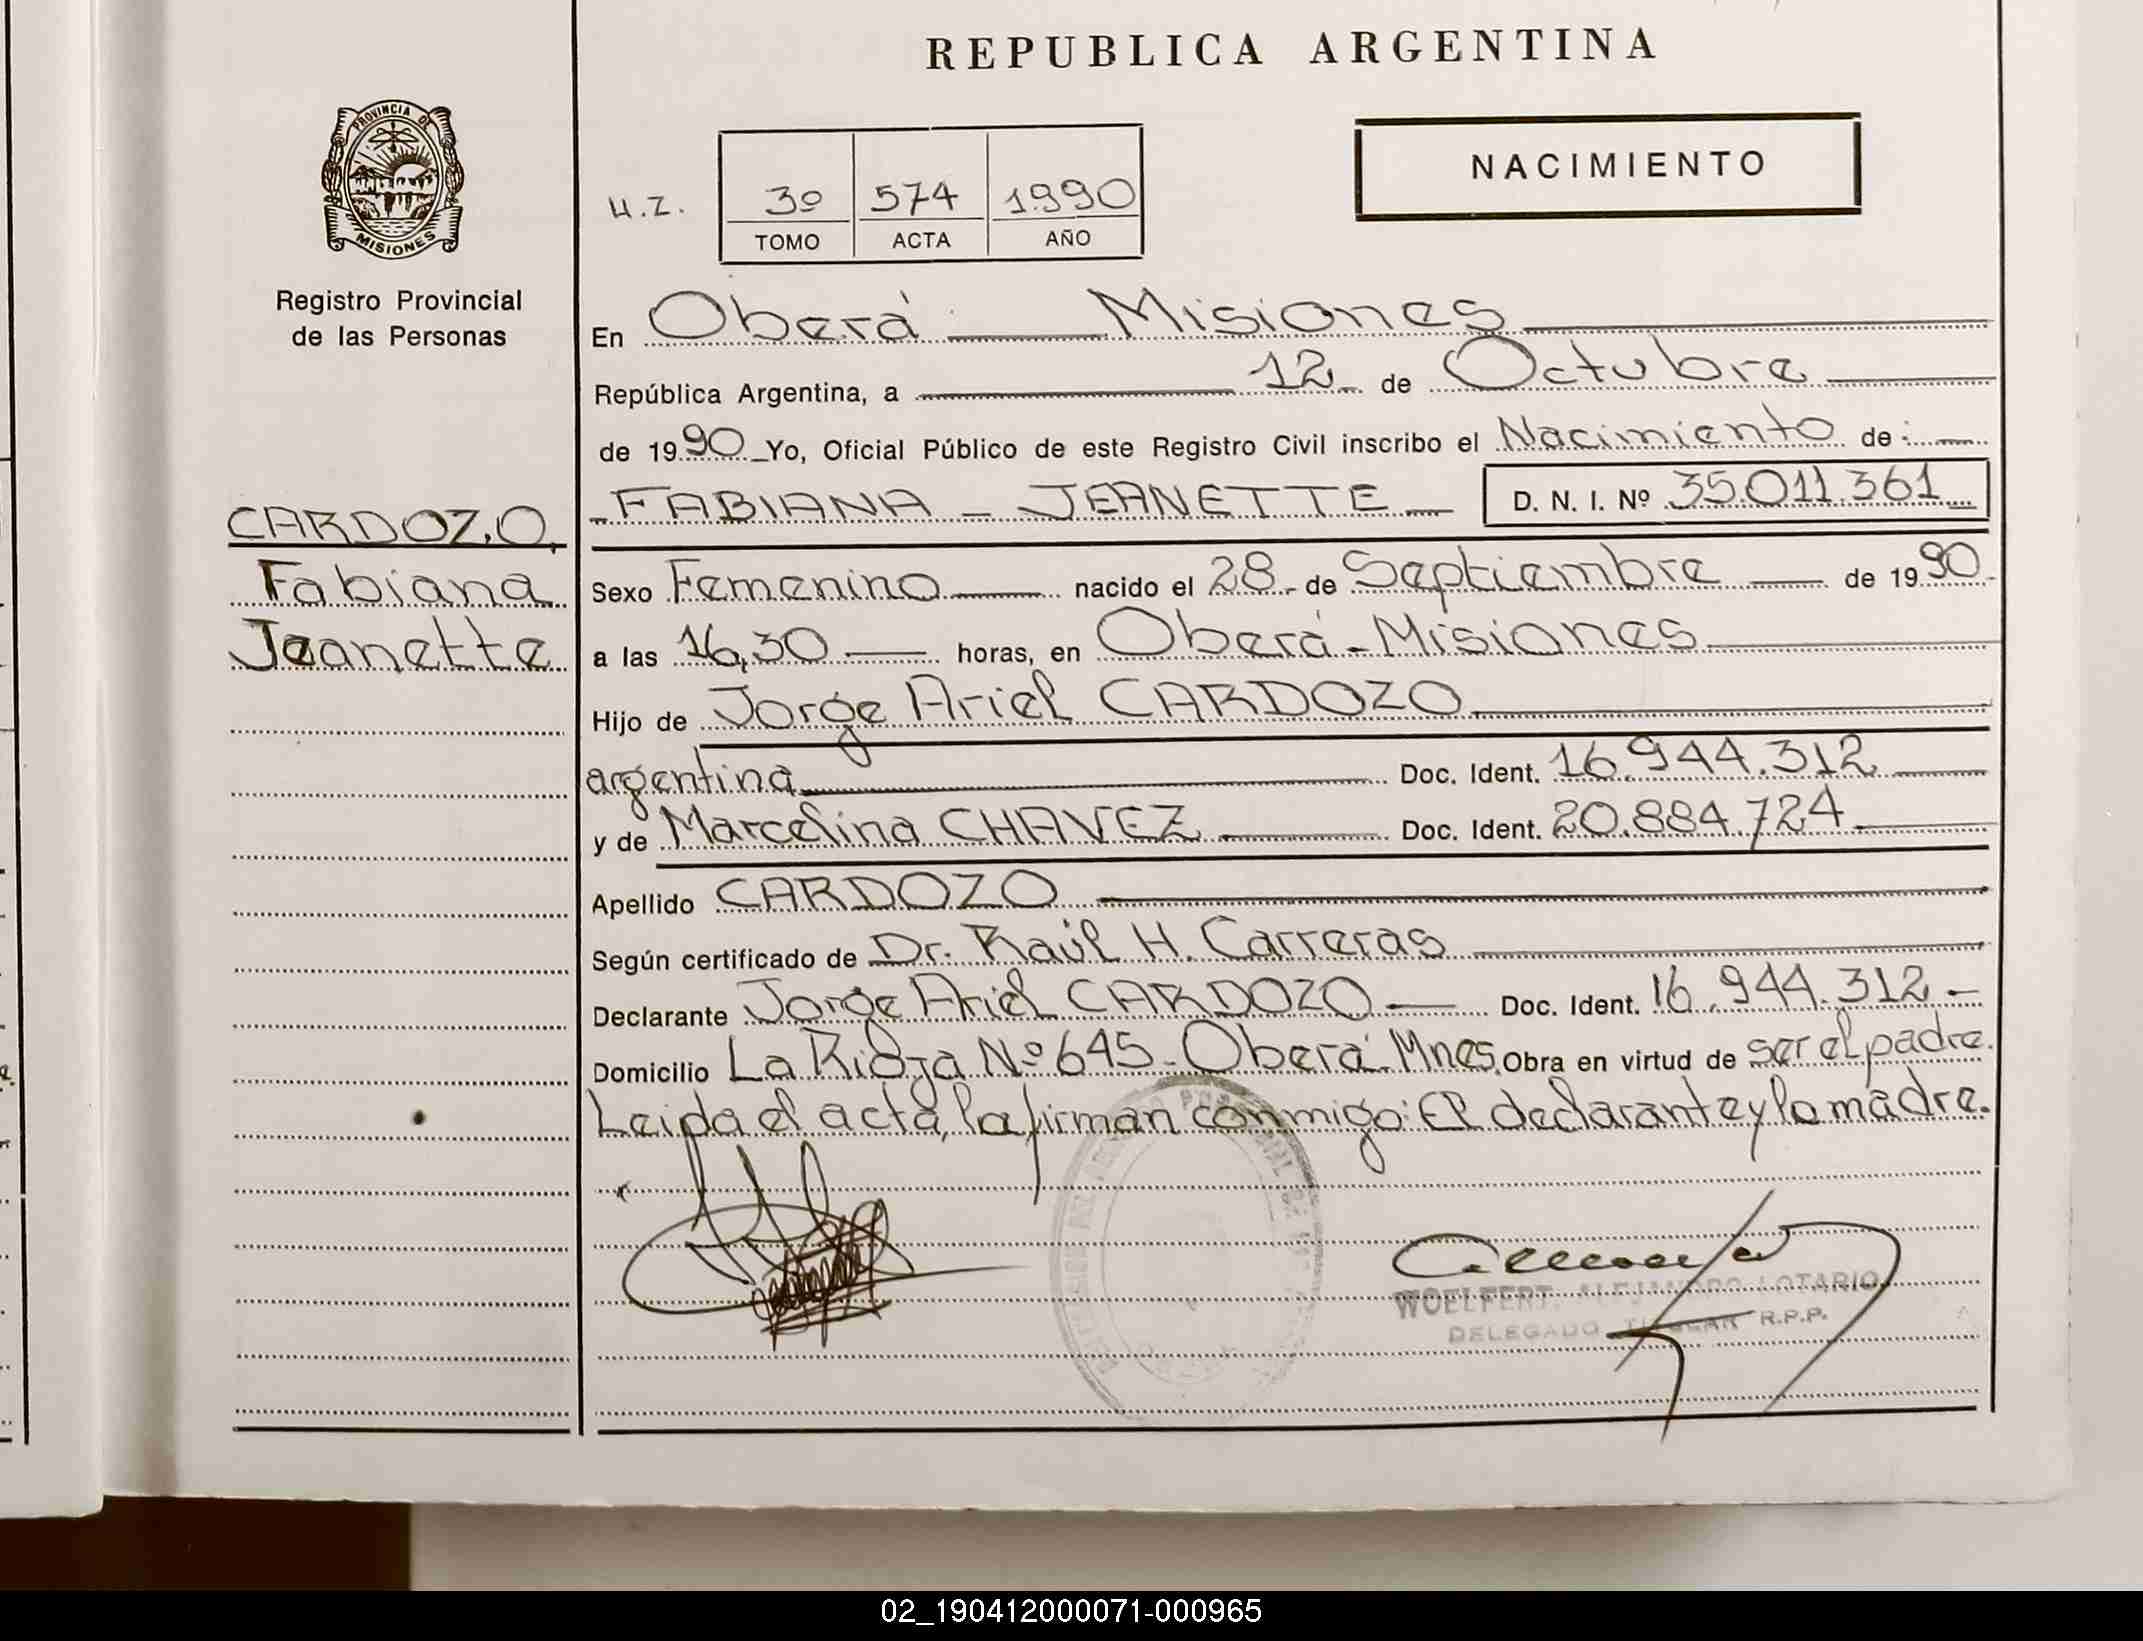 REPUBLICA ARGENTINA
NACIMIENTO
PROVINCIA DE
MISIONES
Registro Provincial
de las Personas
H.Z.
3º 574 1990
TOMO ACTA AÑO
En Oberá Misiones
República Argentina, a 12 de Octubre
de 1990 Yo, Oficial Público de este Registro Civil inscribo el Nacimiento de:
FABIANA - JEANETTE D. N. I. Nº 35.011.361
CARDOZO,
Fabiana
Jeanette
Sexo Femenino nacido el 28 de Septiembre de 1990
a las 16,30 horas, en Oberá - Misiones
Hijo de Jorge Ariel CARDOZO
argentina Doc. Ident. 16.944.312
y de Marcelina CHAVEZ Doc. Ident. 20.884.724
Apellido CARDOZO
Según certificado de Dr. Raúl H. Carreras
Declarante Jorge Ariel CARDOZO Doc. Ident. 16.944.312
Domicilio La Rioja Nº 645 - Oberá - Mnes. Obra en virtud de ser el padre.
Leida el acta, la firman conmigo: El declarante y la madre.
WOELFERT, ALEJANDRO LOTARIO
DELEGADO TITULAR R.P.P.
02_190412000071-000965